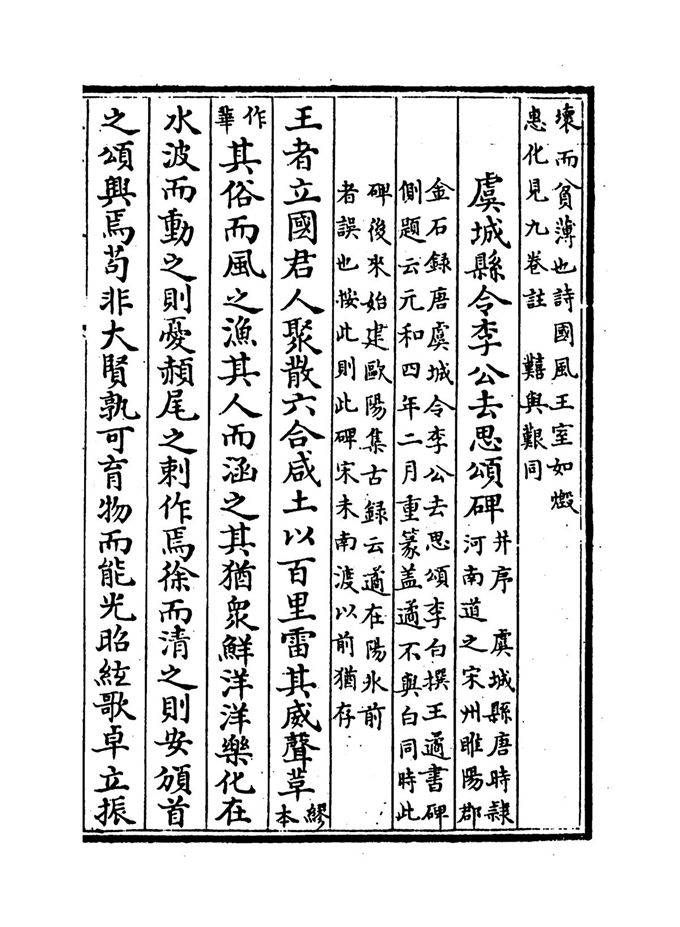 壞而貧薄也詩國風王室如燬
惠化見九卷註　囏與艱同
虞城縣令李公去思頌碑并序　虞城縣唐時隷
河南道之宋州睢陽郡
金石録唐虞城令李公去思頌李白撰王遹書碑
側題云元和四年二月重篆盖遹不與白同時此
碑後來始建歐陽集古録云遹在陽氷前
者誤也按此則此碑宋未南渡以前猶存
王者立國君人聚散六合咸土以百里雷其威聲草繆本
作華其俗而風之漁其人而涵之其猶衆鮮洋洋樂化在
水波而動之則憂赬尾之刺作焉徐而清之則安頒首
之頌興焉茍非大賢孰可育物而能光昭絃歌卓立振